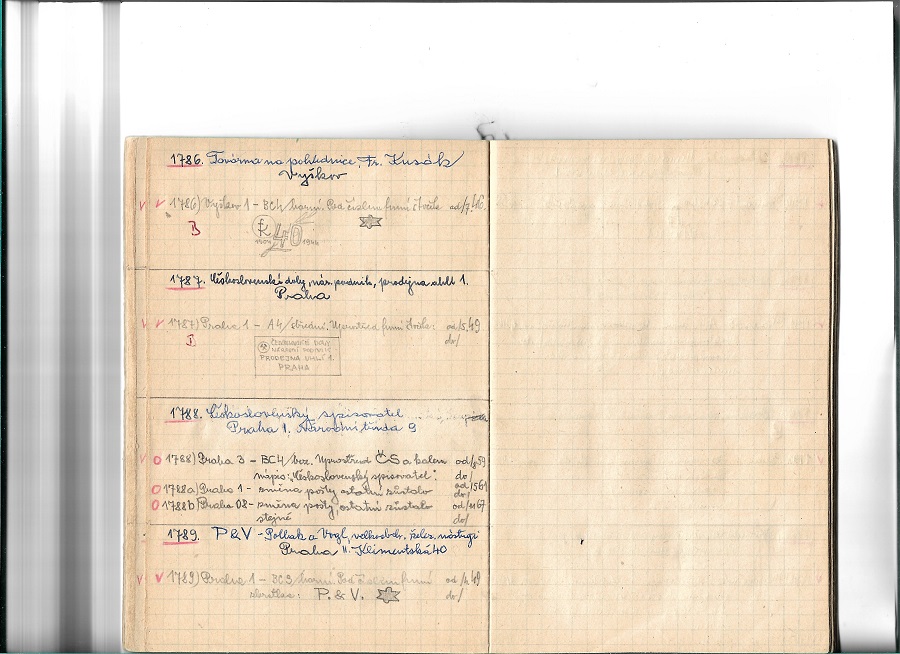 1786. Továrna na pohlednice, Fr. Kusák
Vyškov
1786) Vyškov 1 - BC4 Pod číslem firmí značka od/7.46.
B
fk 40
1944
1787. Československé doly, nár. podnik, prodejna uhlí 1.
Praha
1787) Praha 1 - A4/střední. Uprostřed firmí od/5.49
do/
ČESKOSLOVENSKÉ DOLY
NÁRODNÍ PODNIK
PRODEJNA UHLÍ 1.
PRAHA
1788. Československý spisovatel
Praha 1, Národní třída 9
1788) Praha 3 - BC4/ Uprostřed ČS a kolem od/59
nápis: "Československý spisovatel". do/
1788a) Praha 1 - změna pošty, ostatní zůstalo od/561
do/
1788b) Praha 08 - změna pošty, ostatní zůstalo od/67
stejné do/
1789. P&V - Pollak a Vogl, velkoobch. želez. nástroji
Praha II. - Klimentská 40
1789) Praha 1 - BC3 Pod číslem firmí od/49
zkratka: P. & V. do/